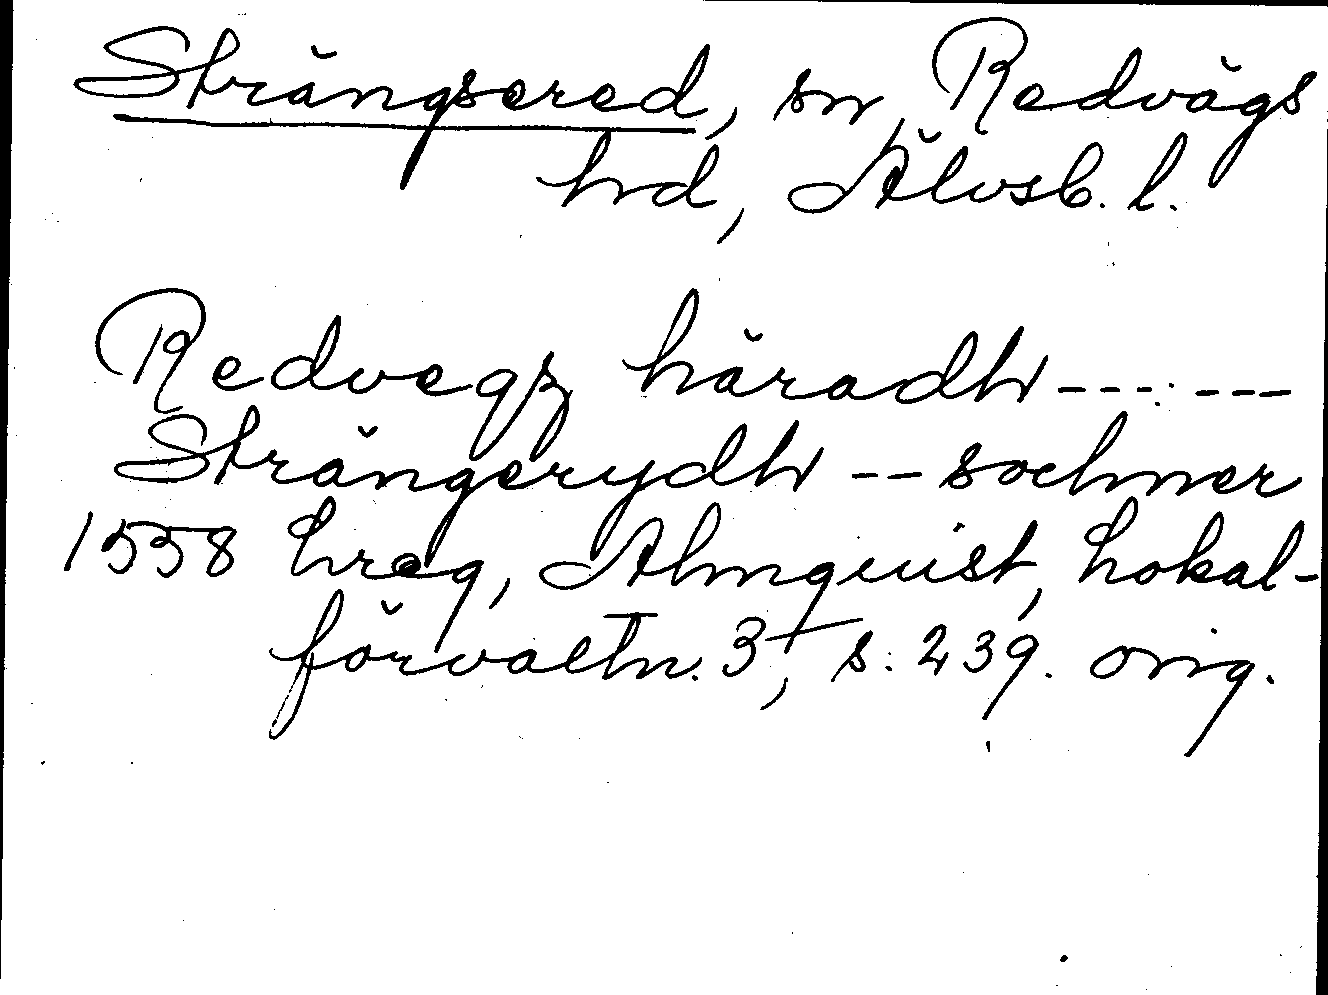 Strängsered, sn, Redvägs
hd, Älvsb. l.
Redvegz häradh --- ---
Strängerydh -- sochner
1558 hreg, Almquist, Lokal-
förvaltn. 3, s. 239. orig.